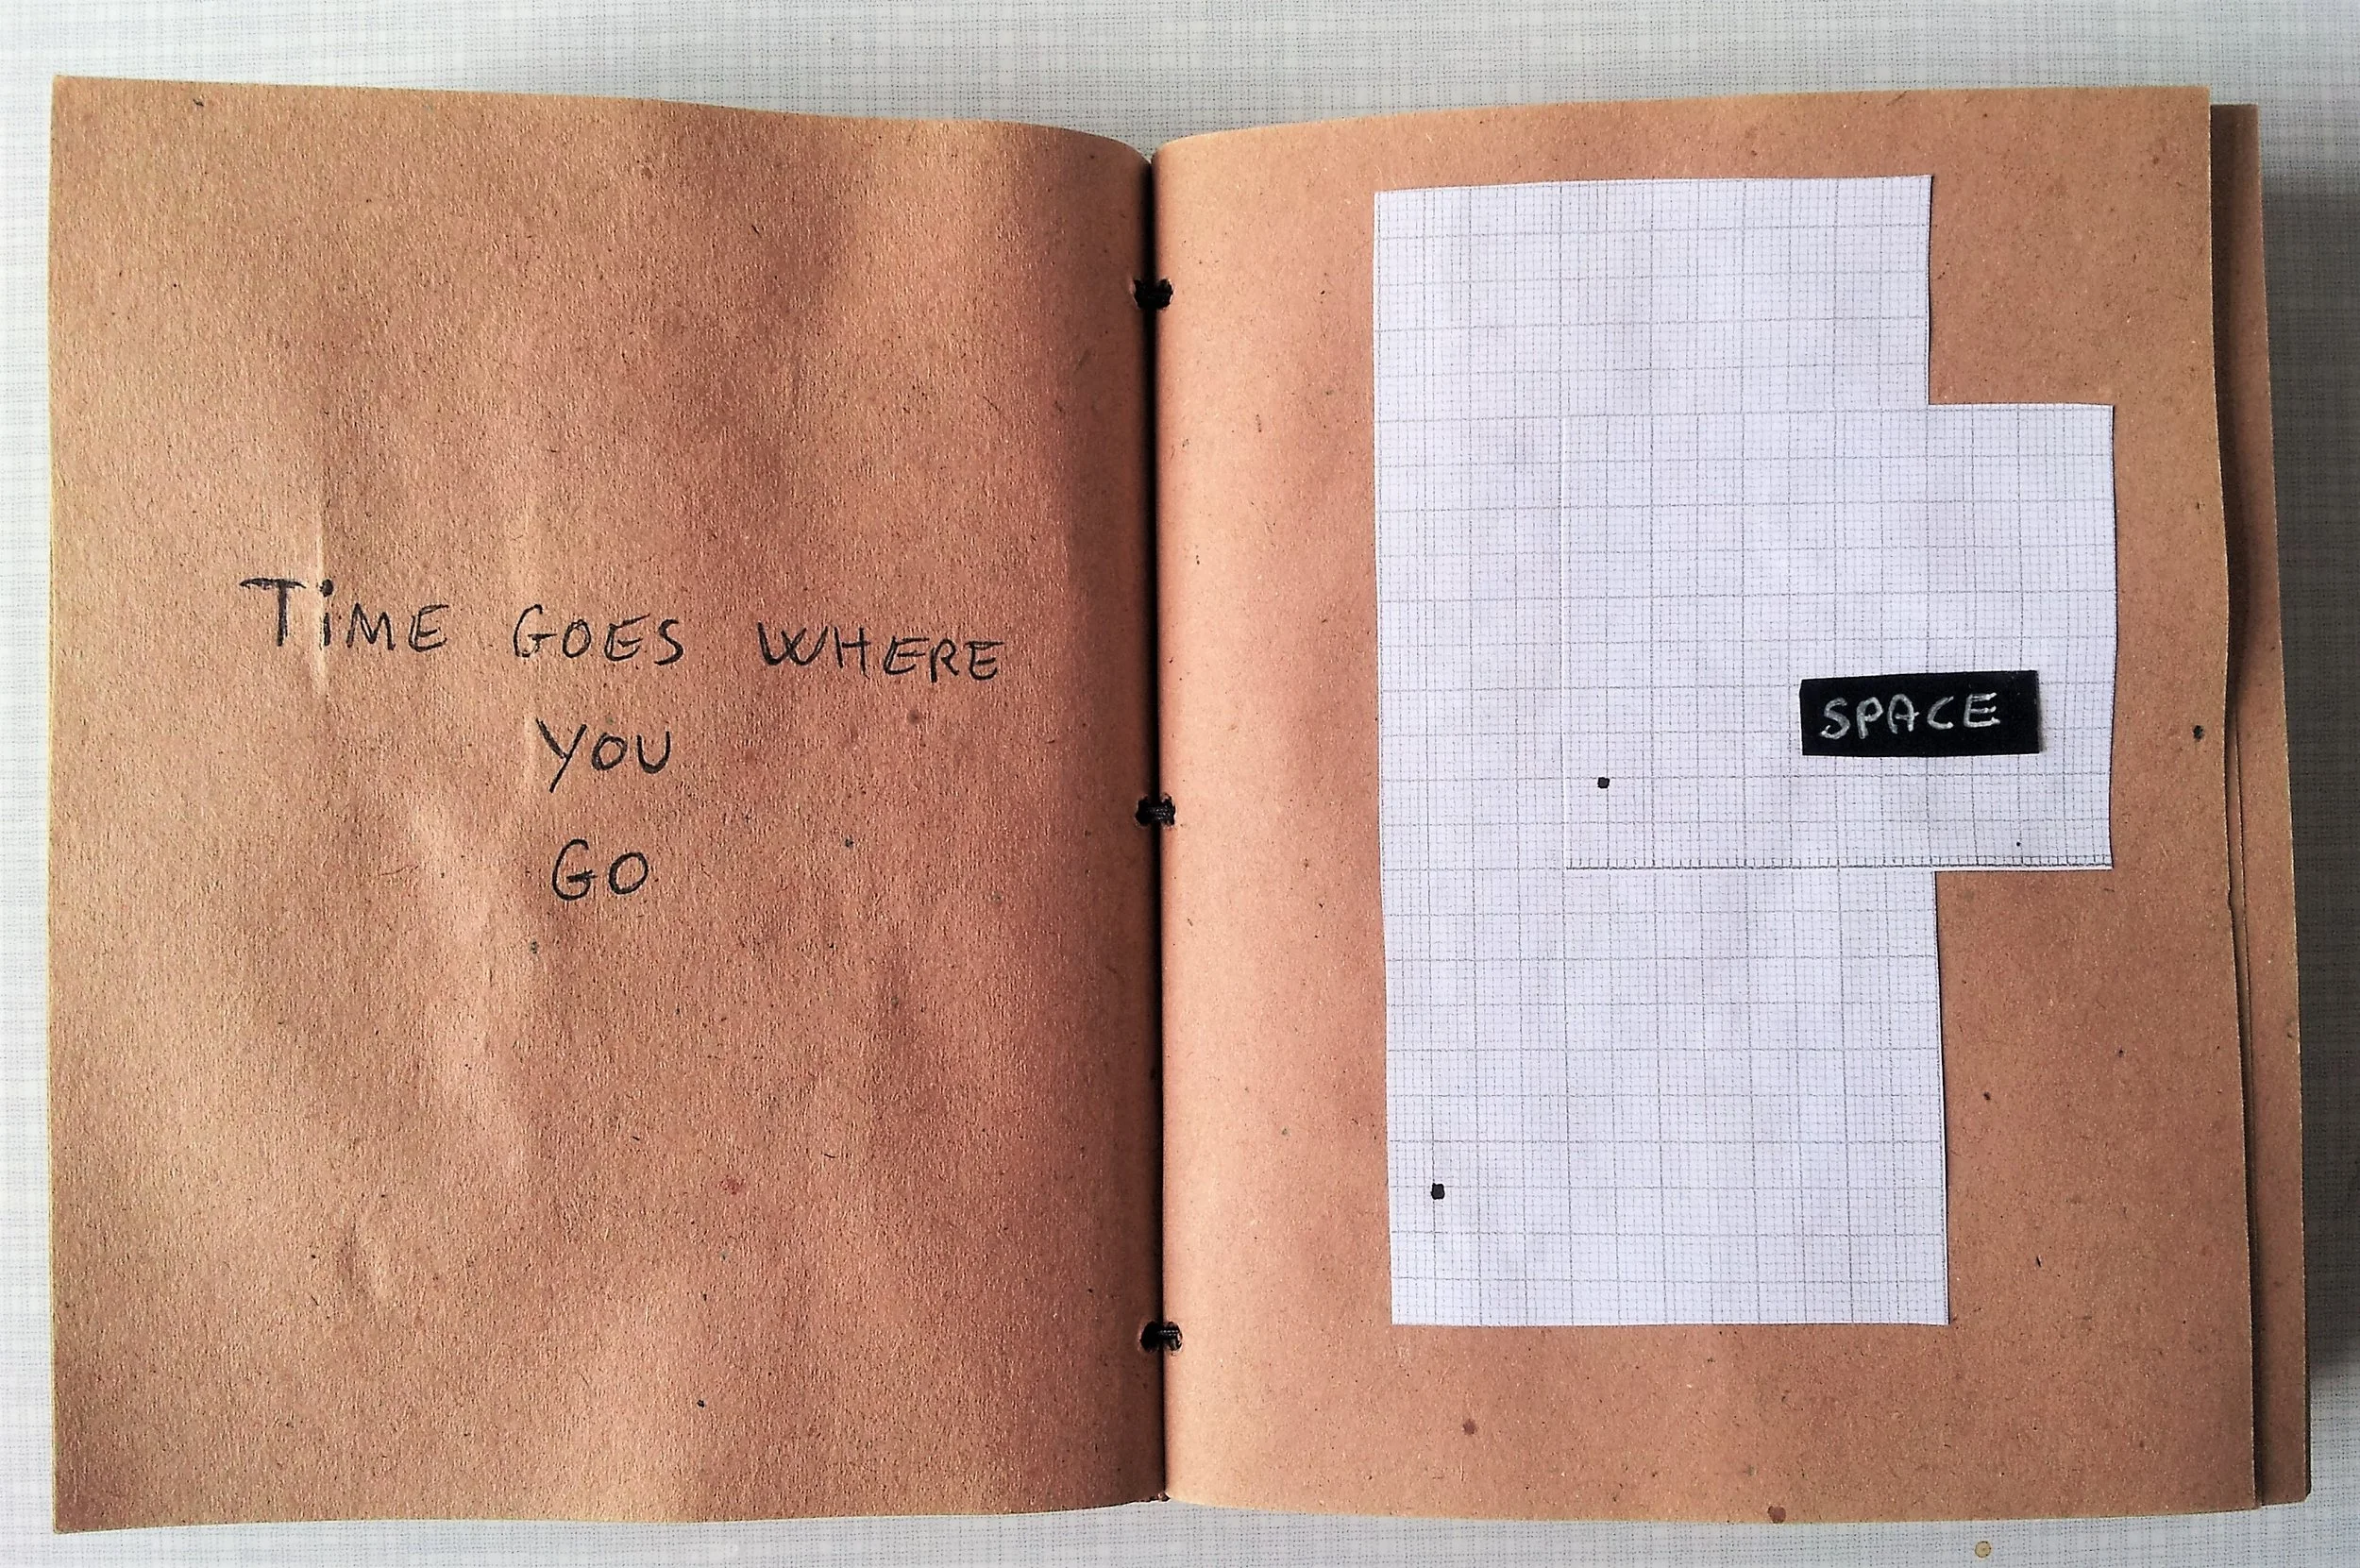 TiME GOES WHERE
YOU
GO
SPACE